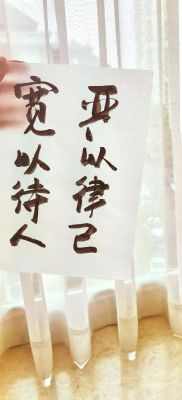 严以律己
宽以待人